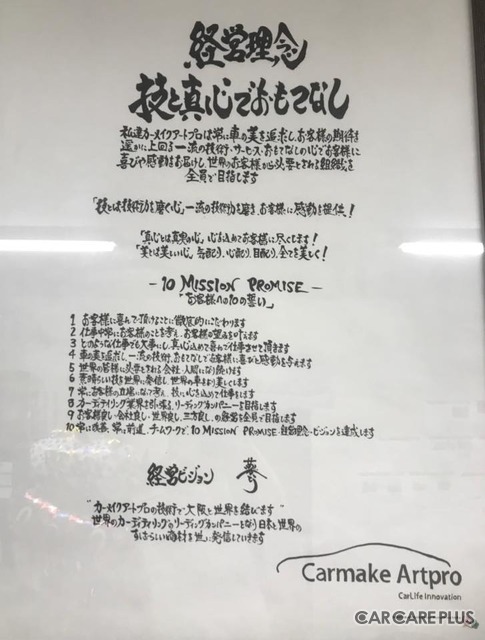 経営理念
技と真心でおもてなし
私達カーメイクアートプロは常に車の美を追求し、お客様の期待を
遥かに上回る一流の技術・サービス・おもてなしの心でお客様に
喜びや感動をお届けし、世界のお客様から必要とされる組織を
全員で目指します
「技とは技術力を磨く心」一流の技術力を磨き、お客様に感動を提供!
「真心とは真実の心」心を込めてお客様に尽くします!
「美とは美しい心」気配り、心配り、目配り、全てを美しく!
-10 MISSION PROMISE-
「お客様への10の誓い」
1 お客様に喜んで頂けることに徹底的にこだわります
2 仕事中常にお客様のことを考え、お客様が望みを叶えます
3 どのような仕事でも大事にし、真心込めて喜んで仕事させて頂きます
4 車の美を追求し、一流の技術、おもてなしでお客様に喜びと感動を与えます
5 世界の皆様に必要とされる会社・人間になり続けます
6 素晴らしい技を世界に発信し、世界の車を美しくします
7 常にお客様の立場になって考え、技に心を込めて仕事をします
8 カーディテイリング業界を引っ張る、リーディングカンパニーを目指します
9 お客様良し・会社良し・世界良し、三方良しの経営を全員で目指します
10 常に改善、常に前進、チームワークで、10 MISSION PROMISE・経営理念・ビジョンを達成します
経営ビジョン 夢
"カーメイクアートプロの技術で大阪と世界を結びます"
世界のカーディテイリングのリーディングカンパニーとなり日本と世界の
すばらしい商材を世に発信していきます
Carmake Artpro
CarLife Innovation
CAR CARE PLUS